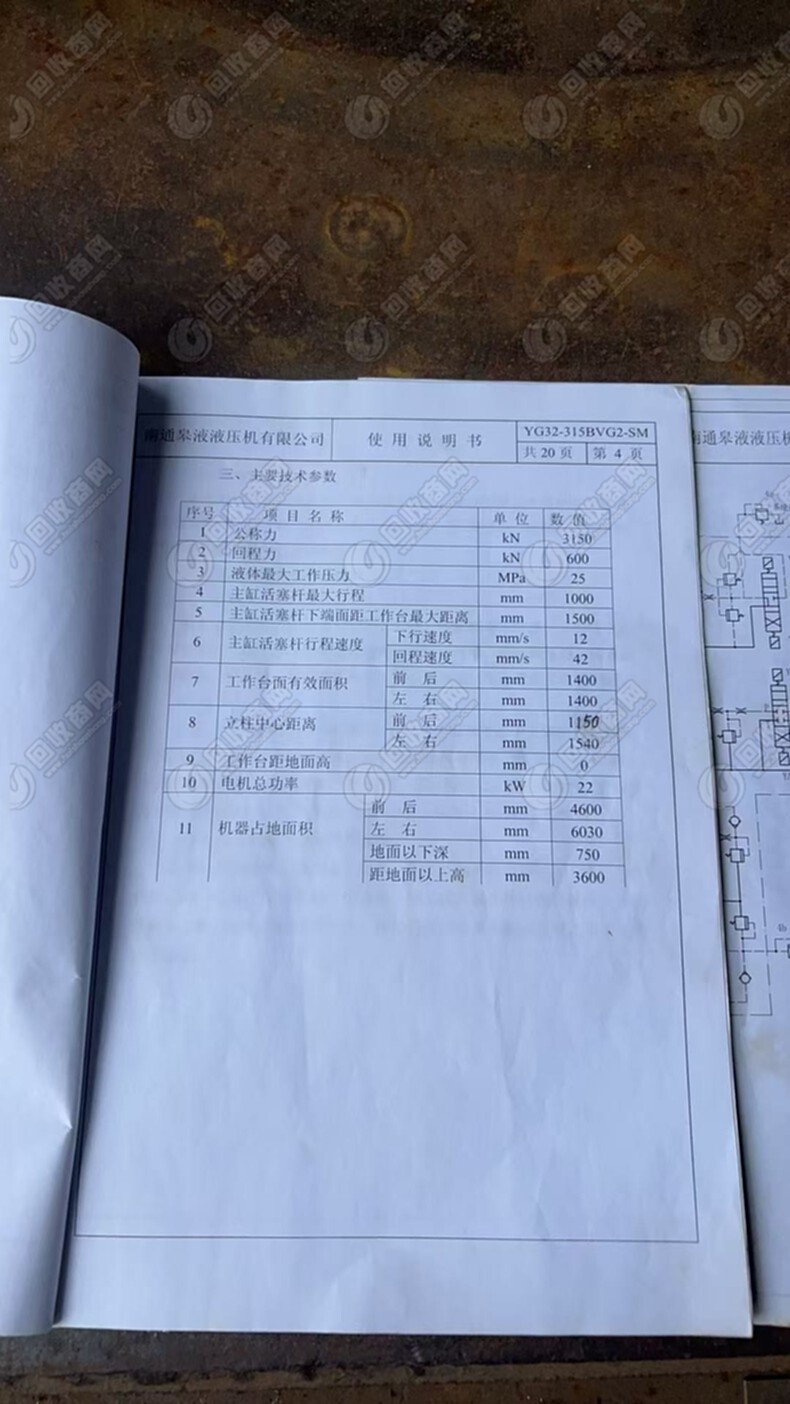 南通皋液液压机有限公司 使用说明书 YG32-315BVG2-SM
共 20 页 第 4 页
三、主要技术参数
序号 项目名称 单位 数值
1 公称力 kN 3150
2 回程力 kN 600
3 液体最大工作压力 MPa 25
4 主缸活塞杆最大行程 mm 1000
5 主缸活塞杆下端面距工作台最大距离 mm 1500
6 主缸活塞杆行程速度 下行速度 mm/s 12
回程速度 mm/s 42
7 工作台面有效面积 前后 mm 1400
左右 mm 1400
8 立柱中心距离 前后 mm 1150
左右 mm 1540
9 工作台距地面高 mm 0
10 电机总功率 kW 22
11 机器占地面积 前后 mm 4600
左右 mm 6030
地面以下深 mm 750
距地面以上高 mm 3600
南通皋液液压机
回收商网